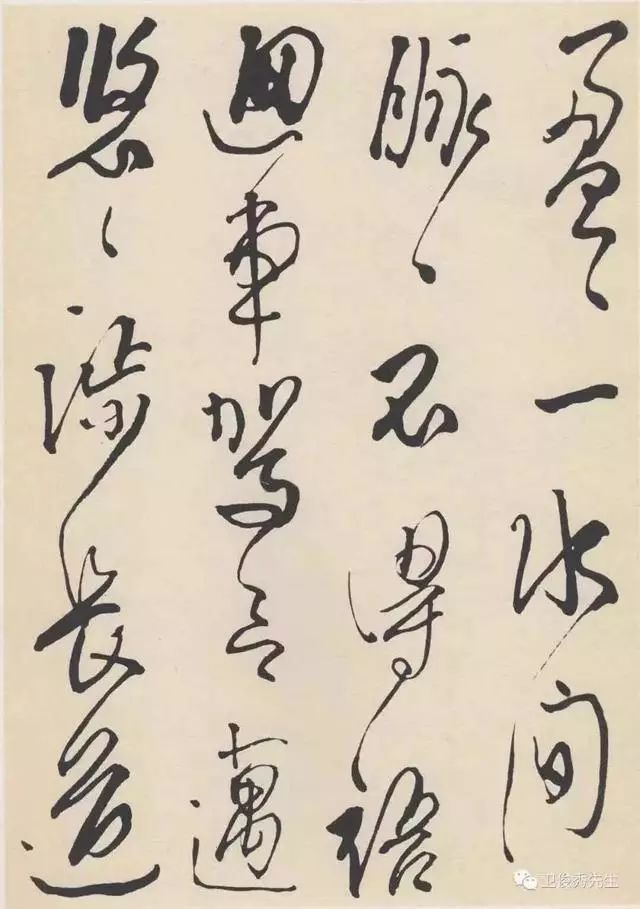 盈〻一水间
脉〻不得语
迴车驾言迈
悠〻涉长道
卫俊秀先生